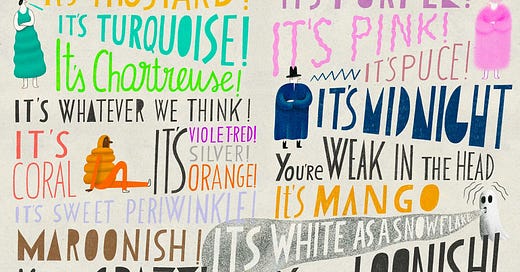 IT'S MUSTARD!
IT'S TURQUOISE!
It's Chartreuse!
IT'S WHATEVER WE THINK!
IT'S
CORAL
IT'S
VIOLETRED!
SILVER!
ORANGE!
IT'S SWEET PERIWINKLE!
MAROONISH!
CRAZY!
IT'S PURPLE!
IT'S PINK!
IT'S PUCE!
IT'S MIDNIGHT
You're WEAK IN THE HEAD
IT'S MANGO
ITS WHITE AS A SNOWFLAKE
LOONISH!